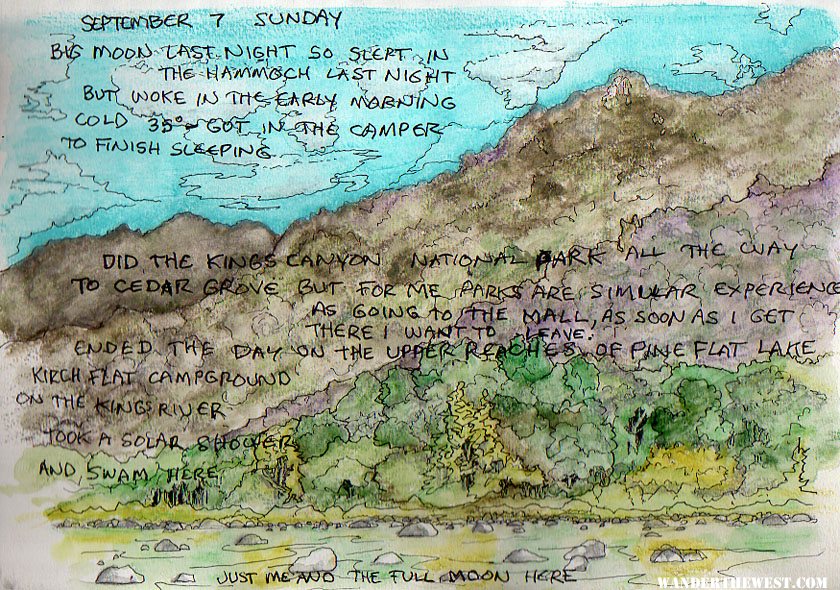 SEPTEMBER 7 SUNDAY
BIG MOON LAST NIGHT SO SLEPT IN
THE HAMMOCH LAST NIGHT
BUT WOKE IN THE EARLY MORNING
COLD 35° GOT IN THE CAMPER
TO FINISH SLEEPING
DID THE KINGS CANYON NATIONAL PARK ALL THE WAY
TO CEDAR GROVE BUT FOR ME PARKS ARE SIMULAR EXPERIENCE
AS GOING TO THE MALL, AS SOON AS I GET
THERE I WANT TO LEAVE.
ENDED THE DAY ON THE UPPER REACHES OF PINE FLAT LAKE
KIRCH FLAT CAMPGROUND
ON THE KINGS RIVER
TOOK A SOLAR SHOWER
AND SWAM HERE
JUST ME AND THE FULL MOON HERE
WANDERTHEWEST.COM